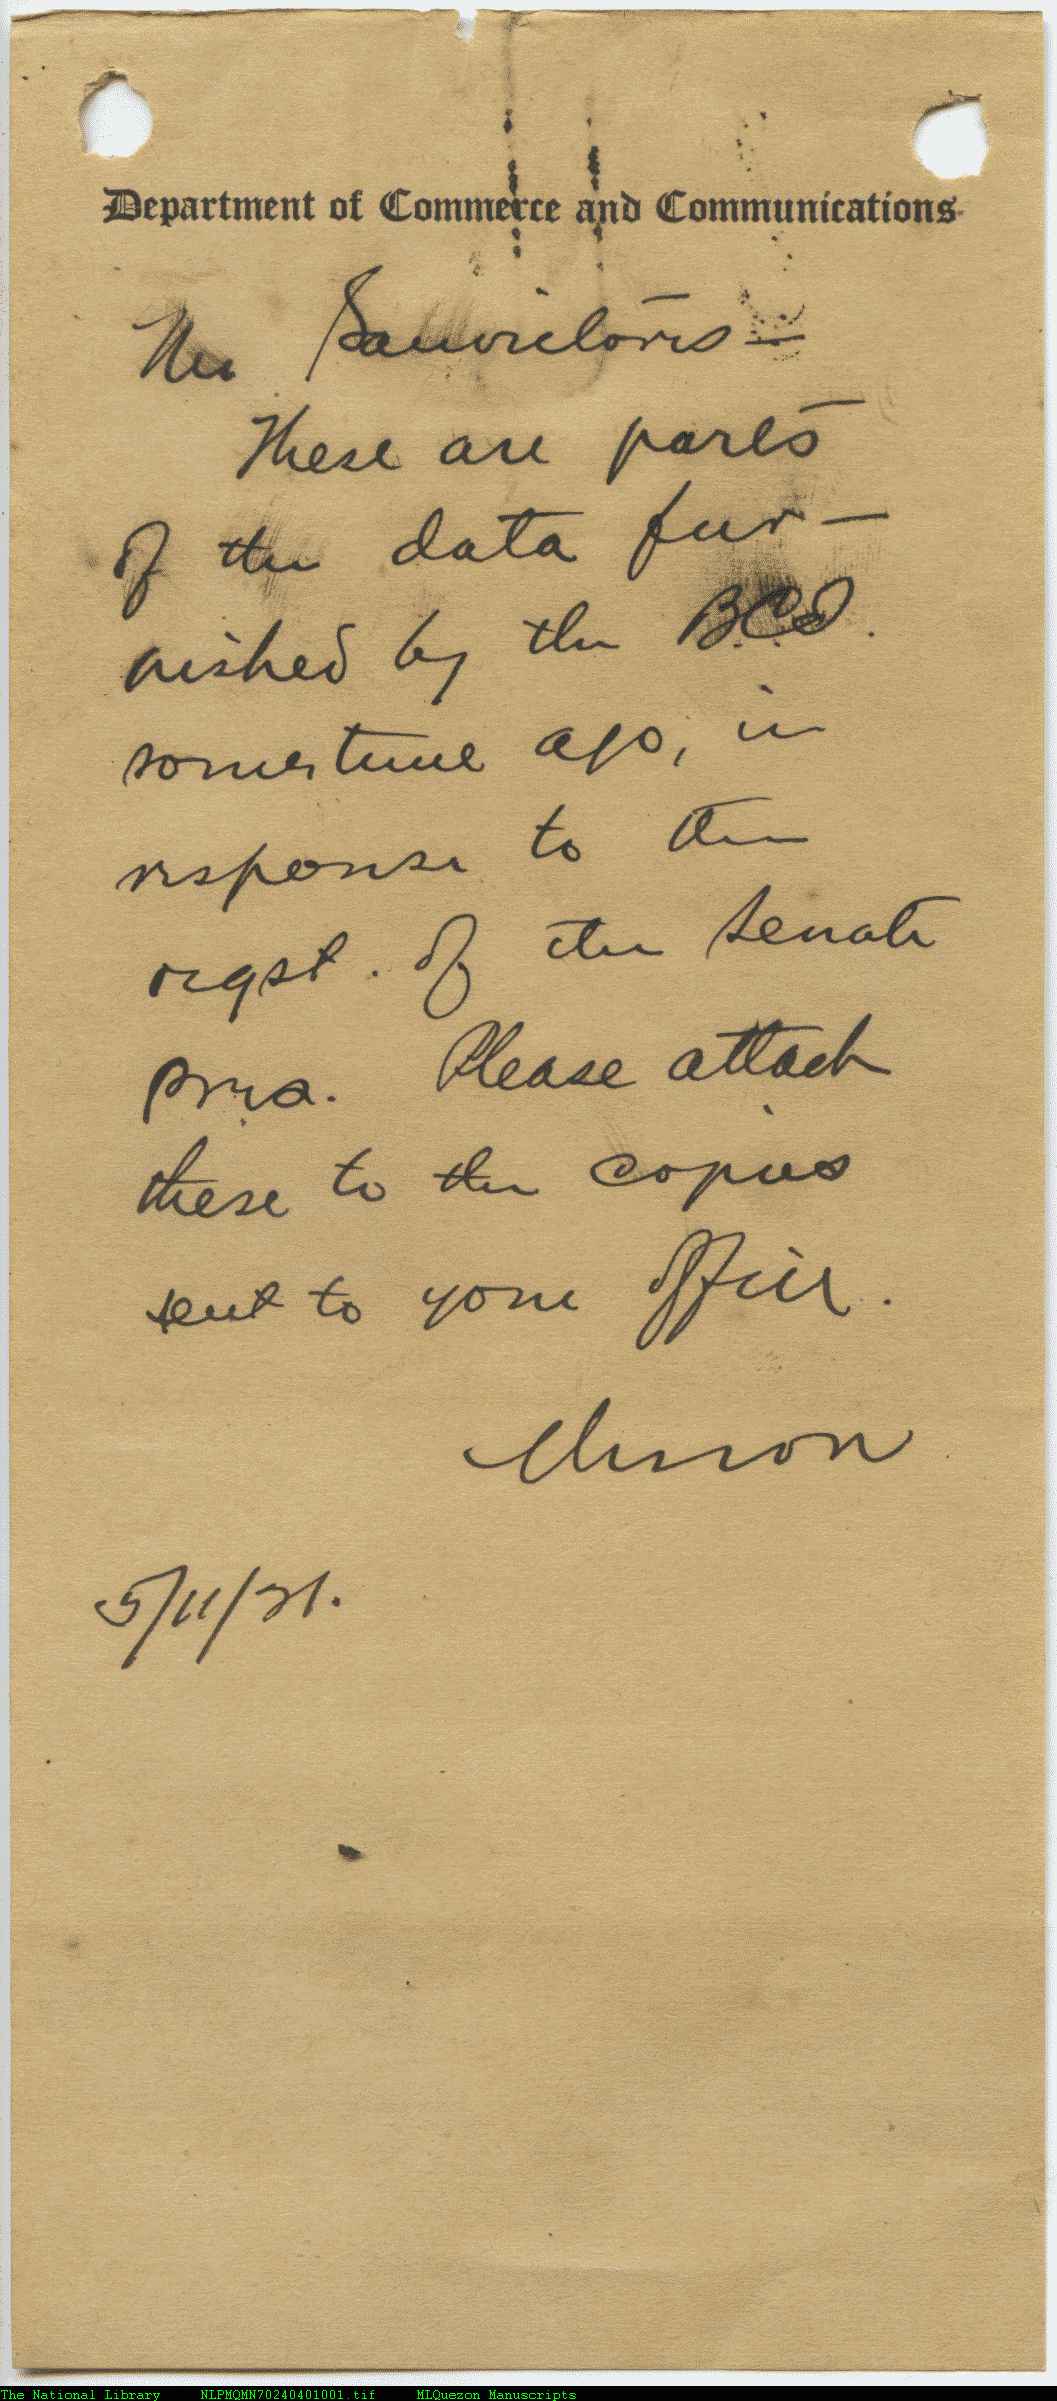 Department of Commerce and Communications
Mr. Sanvictores —
These are parts
of the data fur-
nished by the B.C.I.
sometime ago, in
response to the
rqst. of the Senate
Pres. Please attach
these to the copies
sent to your office.
5/11/31.
The National Library NLPMQMN70240401001.tif MLQuezon Manuscripts